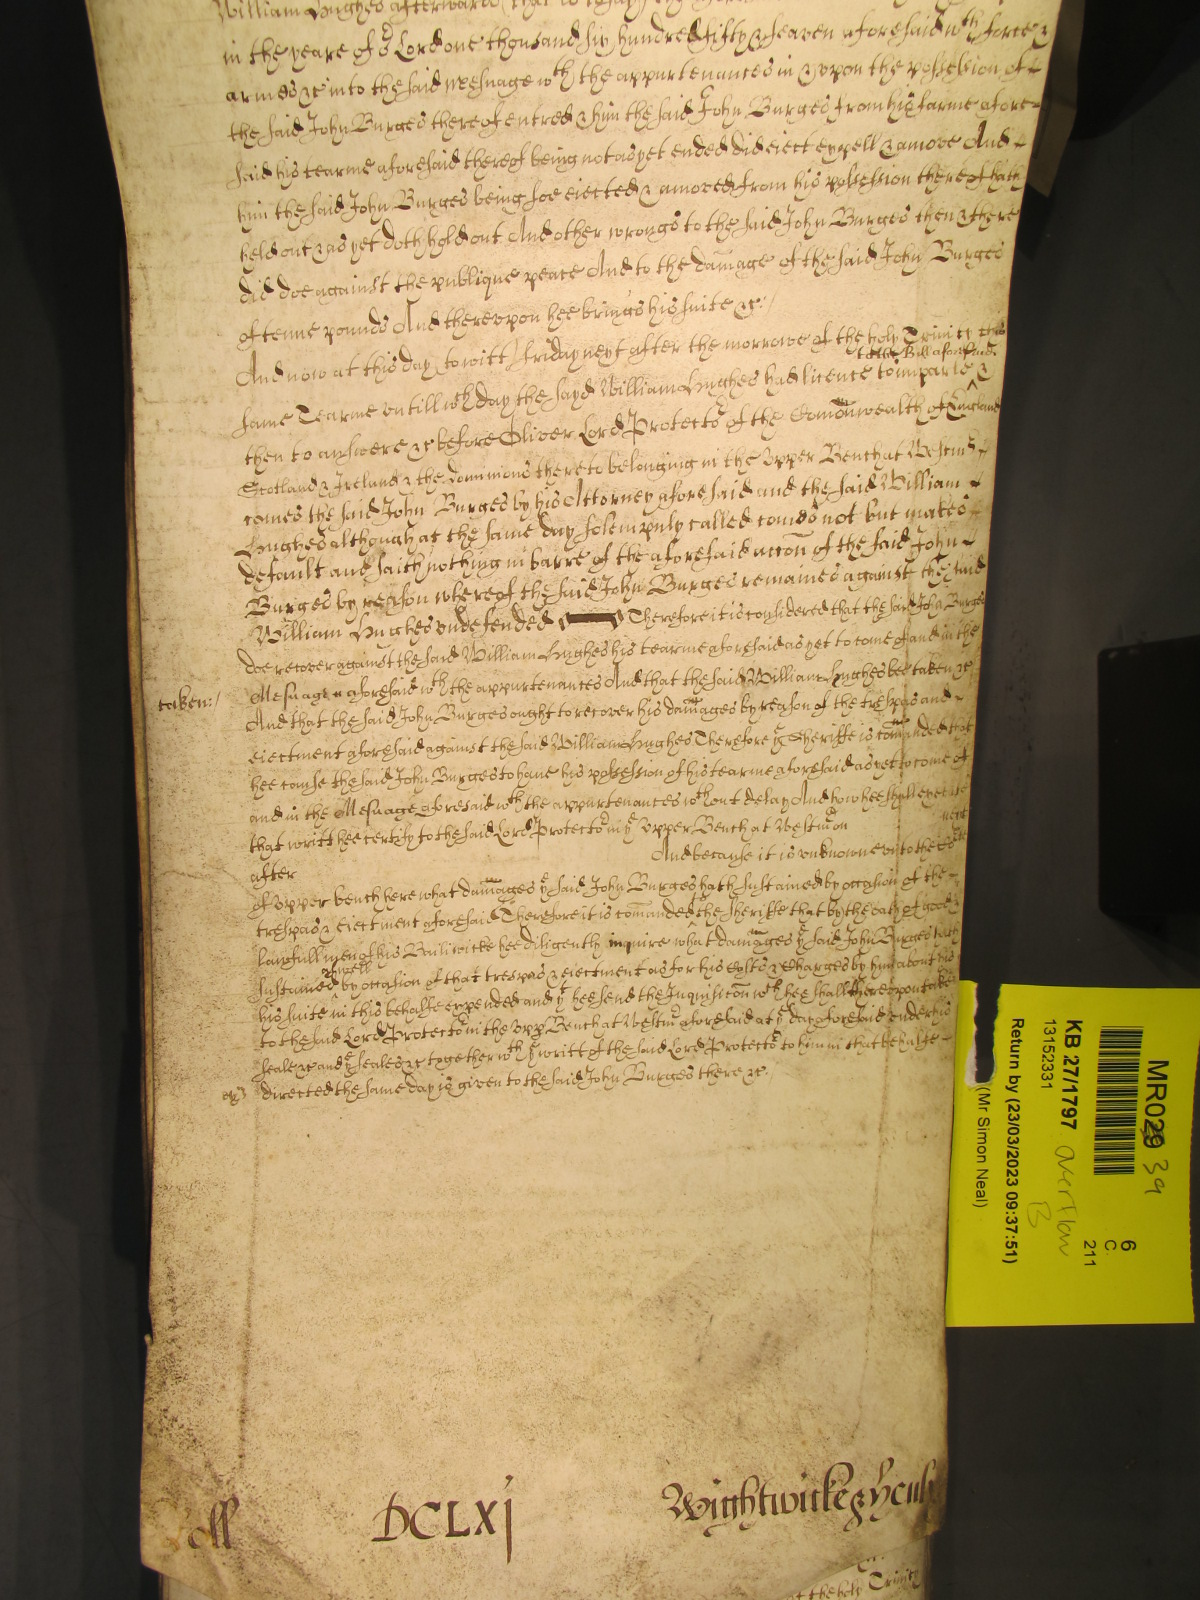 William Hughes afterwards that is to say
in the yeare of or Lord one thousand six hundred fifty & seaven aforesaid wth force &
armes &c into the said Mesuage wth the appurtenances in & upon the possession of
the said John Burges thereof entred & him the said John Burges from his farme afore
said his tearme aforesaid thereof being not as yet ended did eiect expell & amove And
him the said John Burges being soe eiected & amoved from his possession thereof hath
held out & as yet doth hold out And other wrongs to the said John Burges then & there
did doe against the publique peace And to the damage of the said John Burges
of tenne pounds And thereupon hee brings his suite &c:/
And now at this day to witt friday next after the morrowe of the holy Trinity
to the Bill aforesaid
same Tearme untill wch day the sayd William Hughes had licence to imparle &
then to answere &c before Oliver Lord Protector of the Comonwealth of England
Scotland & Ireland & the Dominions thereto belonging in the upper Bench at Westmr
comes the said John Burges by his Attorney aforesaid and the said William
Hughes although at the same day solempnly called comes not but makes
default and saith nothing in barre of the aforesaid accon of the said John
Burges by reason whereof the said John Burges remaines against the said
William Hughes undefended Therefore it is considered that the said John Burges
doe recover against the said William Hughes his tearme aforesaid as yet to come of and in the
taken:/ Mesuage aforesaid wth the appurtenances And that the said William Hughes bee taken &c
And that the said John Burges ought to recover his damages by reason of the trespas and
eiectment aforesaid against the said William Hughes Therefore ye Sheriffe is comanded that
hee cause the said John Burges to have his possession of his tearme aforesaid as yet to come of
and in the Mesuage aforesaid wth the appurtenances wthout delay And how hee shall execute
that writt hee certify to the said Lord Protector in ye Upper Bench at Westmr on next
after And because it is unknowne unto the Court
of Upper bench here what damages ye said John Burges hath sustained by occasion of the
trespas & eiectment aforesaid Therefore it is comanded the Sheriffe that by the oath of good &
lawfull men of his Bailiwicke hee diligently inquire what damages ye said John Burges hath
aswell
sustained by occasion of that trespas & eiectment as for his Costs & Charges by him about his
his suite in this behalfe expended and yt hee send the Inquisicon wch hee shall thereupon take
to the said Lord Protector in the upp Bench at Westmr aforesaid at ye day aforesaid under his
seale &c and ye seales &c together wth ye writt of the said Lord Protector to him in that behalfe
directed the same day is given to the said John Burges there &c./
DCLXJ
Wightwicke &
of the holy Trinity
MR029 39
KB 27/1797
13152331
Return by (23/03/2023 09:37:51)
(Mr Simon Neal)
overflow
B
6
C
211